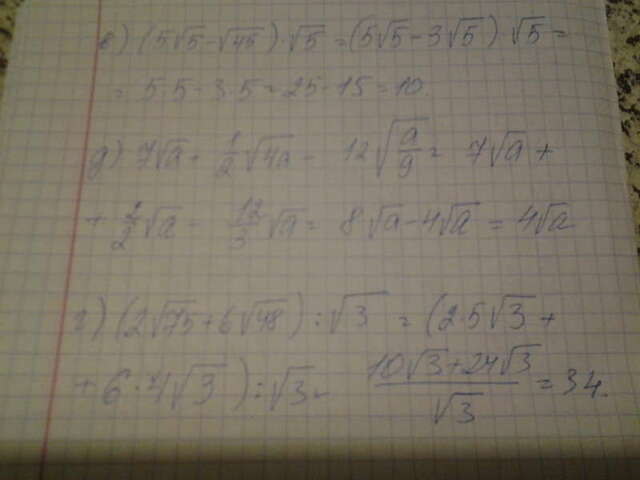 в) (5√5-√45)·√5=(5√5-3√5)·√5=
= 5·5-3·5=25-15=10.
д) 7√a+ 1/2 √4a - 12√(a/9) = 7√a +
+ 2/2 √a - 12/3 √a = 8√a-4√a = 4√a
г) (2√75+6√48):√3 = (2·5√3+
+ 6·4√3):√3= (10√3+24√3)/√3 =34.